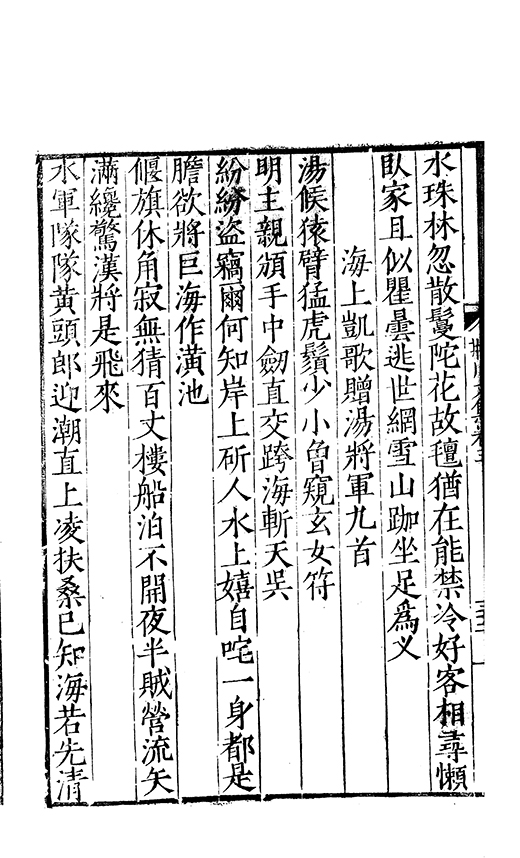 水珠林忽散鬘陀花故氊猶在能禁冷好客相尋懶
臥家且似瞿曇逃世網雪山跏坐足爲义
海上凱歌贈湯將軍九首
湯侯猿臂猛虎鬚少小曾窺玄女符
明主親頒手中劒直交跨海斬天吳
紛紛盜竊爾何知岸上斫人水上嬉自咤一身都是
膽欲將巨海作潢池
偃旗休角寂無猜百丈樓船泊不開夜半賊營流矢
滿纔驚漢將是飛來
水軍隊隊黃頭郎迎潮直上凌扶桑已知海若先清